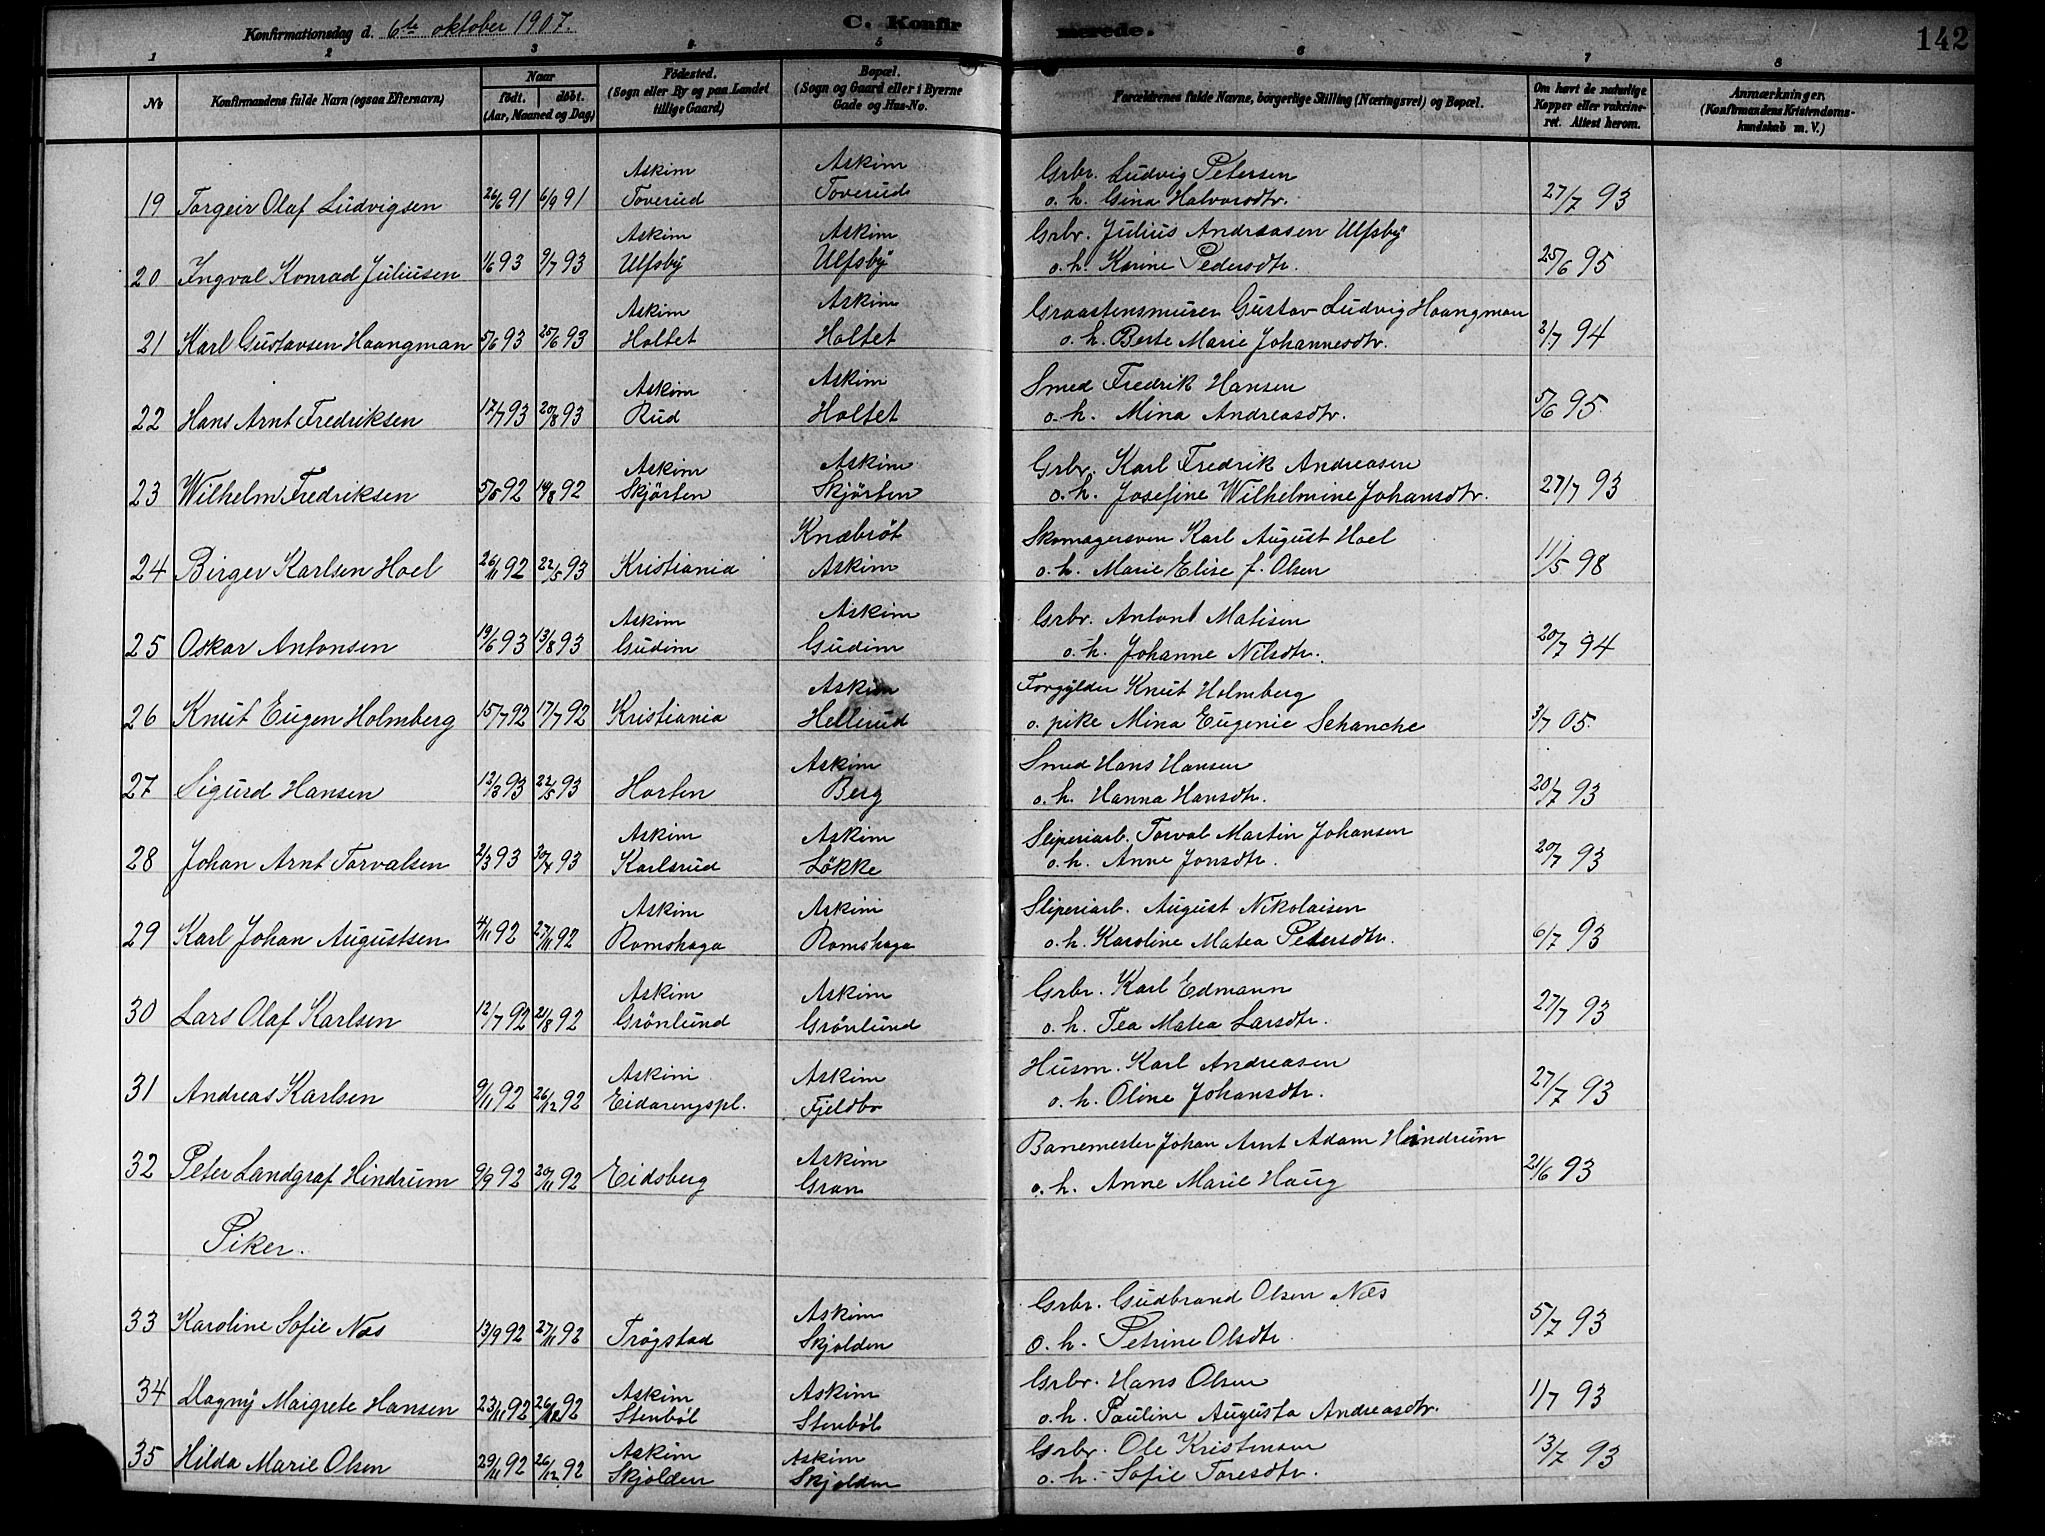 Konfirmationsdag d. 6te oktober 1907. C. Konfirmerede. 142
1 2 3 4 5 6 7 8
No
Konfirmandens fulde Navn (ogsaa Efternavn)
Naar
født. døbt.
(Aar, Maaned og Dag)
Fødested.
(Sogn eller By og paa Landet
tillige Gaard)
Bopæl.
(Sogn og Gaard eller i Byerne
Gade og Hus-No.
Forældrenes fulde Navne, borgerlige Stilling (Næringsvei) og Bopæl.
Om havt de naturlige
Kopper eller vaccine-
ret. Attest herom.
Anmærkninger.
(Konfirmandens Kristendoms-
kundskab m. V.)
Askim Askim Grbr. Ludvig Petersen
19 Torgeir Olaf Ludvigsen 26/6 91 6/9 91 Toverud Toverud o. h. Gina Halvorsdtr. 27/7 93
Askim Askim Grbr. Julius Andreasen Ulfsby
20 Ingval Konrad Juliusen 1/6 93 9/7 93 Ulfsby Ulfsby o. h. Karine Pedersdtr. 25/6 95
Askim Askim Graastensmurer Gustav Ludvig Haangman
21 Karl Gustavsen Haangman 5/6 93 25/6 93 Holtet Holtet o. h. Berte Marie Johannesdtr. 2/7 94
Askim Askim Smed Fredrik Hansen
22 Hans Arnt Fredriksen 17/7 93 20/8 93 Rud Holtet o. h. Mina Andreasdtr. 5/6 95
Askim Askim Grbr. Karl Fredrik Andreasen
23 Wilhelm Fredriksen 5/5 92 14/8 92 Skjørten Skjørten o. h. Josefine Wilhelmine Johansdtr. 27/7 93
Knabrøt Skomagersven Karl August Hoel
24 Birger Karlsen Hoel 26/11 92 22/5 93 Kristiania Askim o. h. Marie Elise f. Olsen 11/5 98
Askim Askim Grbr. Anton Matisen
25 Oskar Antonsen 19/6 93 13/8 93 Gudim Gudim o. h. Johanne Nilsdtr. 20/7 94
Askim Forgylder Knut Holmberg
26 Knut Eugen Holmberg 15/7 92 17/7 92 Kristiania Hellerud o. pike Mina Eugenie Schanche 3/7 05.
Askim Smed Hans Hansen
27 Sigurd Hansen 12/3 93 22/5 93 Horten Berg o. h. Hanna Hansdtr. 20/7 93
Askim Askim Sliperiarb. Torval Martin Johansen
28 Johan Arnt Torvalsen 2/3 93 30/4 93 Karlsrud Løkke o. h. Anne Jonsdtr. 20/7 93
Askim Askim Sliperiarb. August Nikolaisen
29 Karl Johan Augustsen 4/11 92 27/11 92 Romshaga Romshaga o. h. Karoline Matea Petersdtr. 6/7 93
Askim Askim Grbr. Karl Edmann
30 Lars Olaf Karlsen 12/7 92 21/8 92 Grønlund Grønlund o. h. Tea Matea Larsdtr. 27/7 93
Askim Askim Husm. Karl Andreasen
31 Andreas Karlsen 9/11 92 26/12 92 Eidarengspl. Fjeldbo o. h. Oline Johansdtr. 27/7 93
Askim Banemester Johan Arnt Adam Hindrum
32 Peter Landgraf Hindrum 9/9 92 20/11 92 Eidsberg Gran o. h. Anne Marie Haug 21/6 93
Piker.
Askim Grbr. Gudbrand Olsen Næs
33 Karoline Sofie Næs 13/9 92 27/11 92 Trøgstad Skjolden o. h. Petrine Olsdtr. 5/7 93
Askim Askim Grbr. Hans Olsen
34 Dagny Margrete Hansen 23/11 92 26/12 92 Stenbøl Stenbøl o. h. Pauline Augusta Andreasdtr. 1/7 93
Askim Askim Grbr. Ole Kristensen
35 Hilda Marie Olsen 29/11 92 26/12 92 Skjolden Skjolden o. h. Sofie Toresdtr. 13/7 93